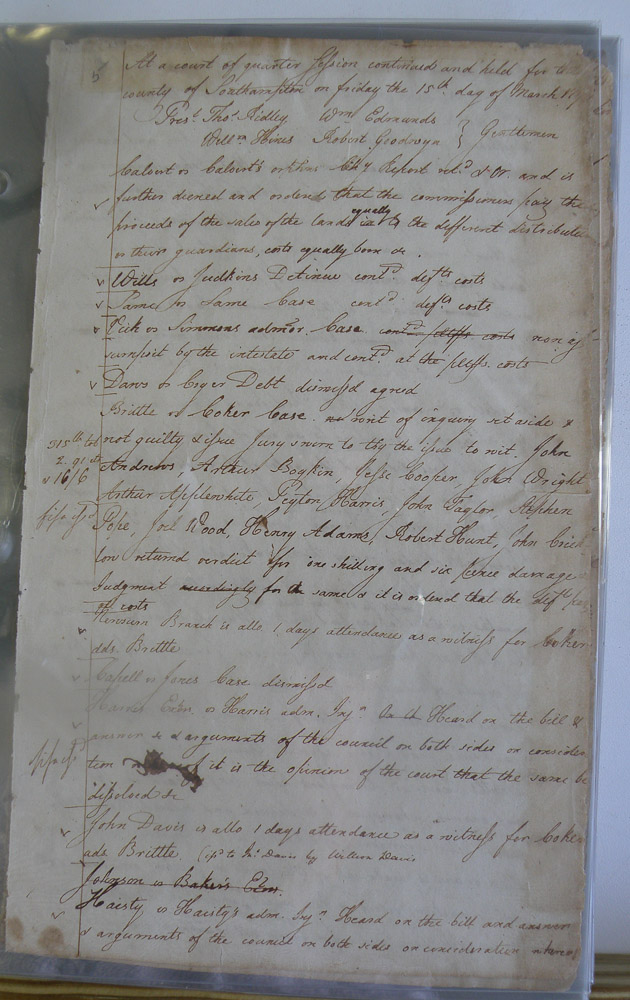 5
At a court of quarter Session continued and held for
county of Southampton on friday the 15th day of March
Prest. Thos. Ridley Wm Edmunds
Willm Hines Robert Goodwyn } Gentlemen
Calvert vs Calvert's orphns Chy Report retd. &c. and is
further decreed and ordered that the commissioners pay the
proceeds of the sales of the lands equally to the different distributees
or their guardians, costs equally born &c.
Wills vs Judkins Detinue contd. defts costs
Same vs Same Case contd. defts costs
Pick vs Simmons admor. Case contd. pltffs costs non as-
sumpsit by the intestate and contd. at the pltffs. costs
Daws vs Coyer Debt dismissd agreed
Brittle vs Coker Case writ of inquiry set aside &
not guilty & issue Jury sworn to try the issue to wit, John
315 lb tob
16/6
Andrews, Arthur Boykin, Jesse Cooper, John Wright
Arthur Applewhite, Peyton Harris, John Taylor, Stephen
Pope, Joel Wood, Henry Adams, Robert Hunt, John Crich
low returned verdict for one shilling and six pence damages
Judgment accordingly for the same & it is ordered that the deft pay
costs
Branch is allo 1 days attendance as a witness for Coker
ads. Brittle
Capell vs Jones Case dismissd
Harris Exor. vs Harris adm. Injn Heard on the bill &
answer & arguments of the council on both sides on considera
tion it is the opinion of the court that the same be
dissolved &c
John Davis is allo 1 days attendance as a witness for Coker
ads. Brittle (isd to Jno Davis by William Davis
Johnson vs Baker's Exor.
Haisty vs Haisty's adm. Injn Heard on the bill and answer
& arguments of the council on both sides on consideration whereof